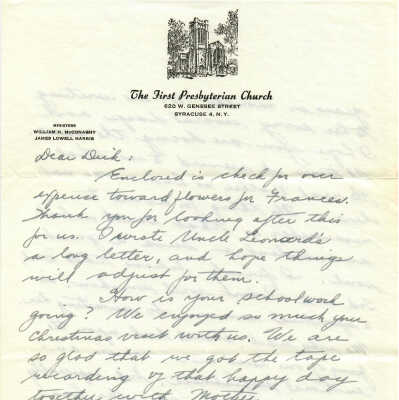 The First Presbyterian Church
620 W. GENESEE STREET
SYRACUSE 4, N.Y.
MINISTERS
WILLIAM H. McCONAGHY
JAMES LOWELL HARRIS
Dear Dick:
Enclosed is check for our
expense toward flowers for Frances.
Thank you for looking after this
for us. I wrote Uncle Leonard's
a long letter, and hope things
will adjust for them.
How is your schoolwork
going? We enjoyed so much your
Christmas visit with us. We are
so glad that we got the tape
recording of that happy day
together with Mother